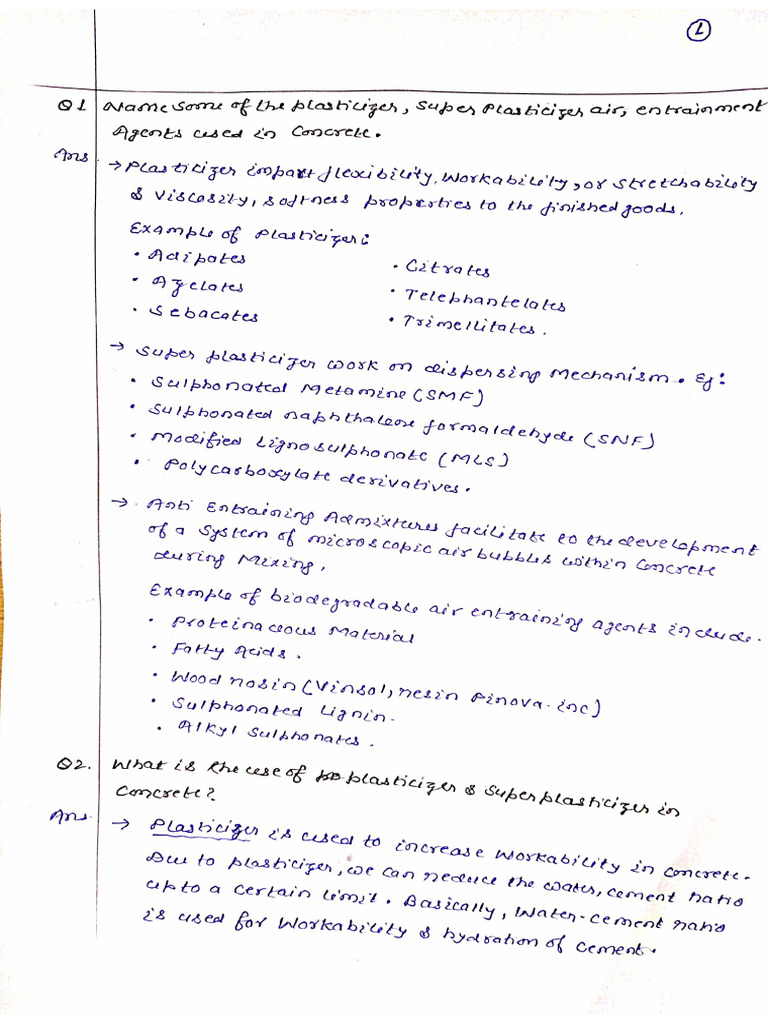 1
Q1 Name some of the plasticizer, super plasticizer air, entrainment
Agents used in Concrete.
Ans. → Plasticizer impart flexibility, workability, or stretchability
& viscosity, softness properties to the finished goods.
Example of Plasticizer:
• Adipates
• Citrates
• Azelates
• Telephantelates
• Sebacates
• Trimellitates.
→ Super plasticizer work on dispersing mechanism. Eg:
• Sulphonated Metamine (SMF)
• Sulphonated naphthalene formaldehyde (SNF)
• Modified Lignosulphonate (MLS)
• Polycarboxylate derivatives.
→ Anti Entraining Admixtures facilitate to the development
of a system of microscopic air bubbles within Concrete
during Mixing.
Example of biodegradable air entraining agents include.
• Proteinaceous Material
• Fatty Acids.
• Wood rosin (Vinsol, resin Pinova. inc)
• Sulphonated Lignin.
• Alkyl Sulphonates.
Q2. What is the use of plasticizer & superplasticizer in
Concrete?
Ans. → Plasticizer is used to increase workability in concrete.
Due to plasticizer, we can reduce the water, cement ratio
upto a certain limit. Basically, water-cement ratio
is used for workability & hydration of cement.